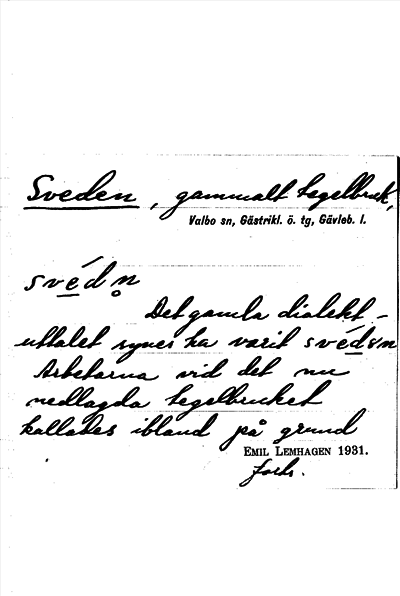 Sveden, gammalt tegelbruk,
Valbo sn, Gästrikl. ö. tg, Gävleb. l.
svédn̥
Det gamla dialekt-
uttalet synes ha varit svédɘn
Arbetarna vid det nu
nedlagda tegelbruket
kallades ibland på grund
EMIL LEMHAGEN 1931.
forts.